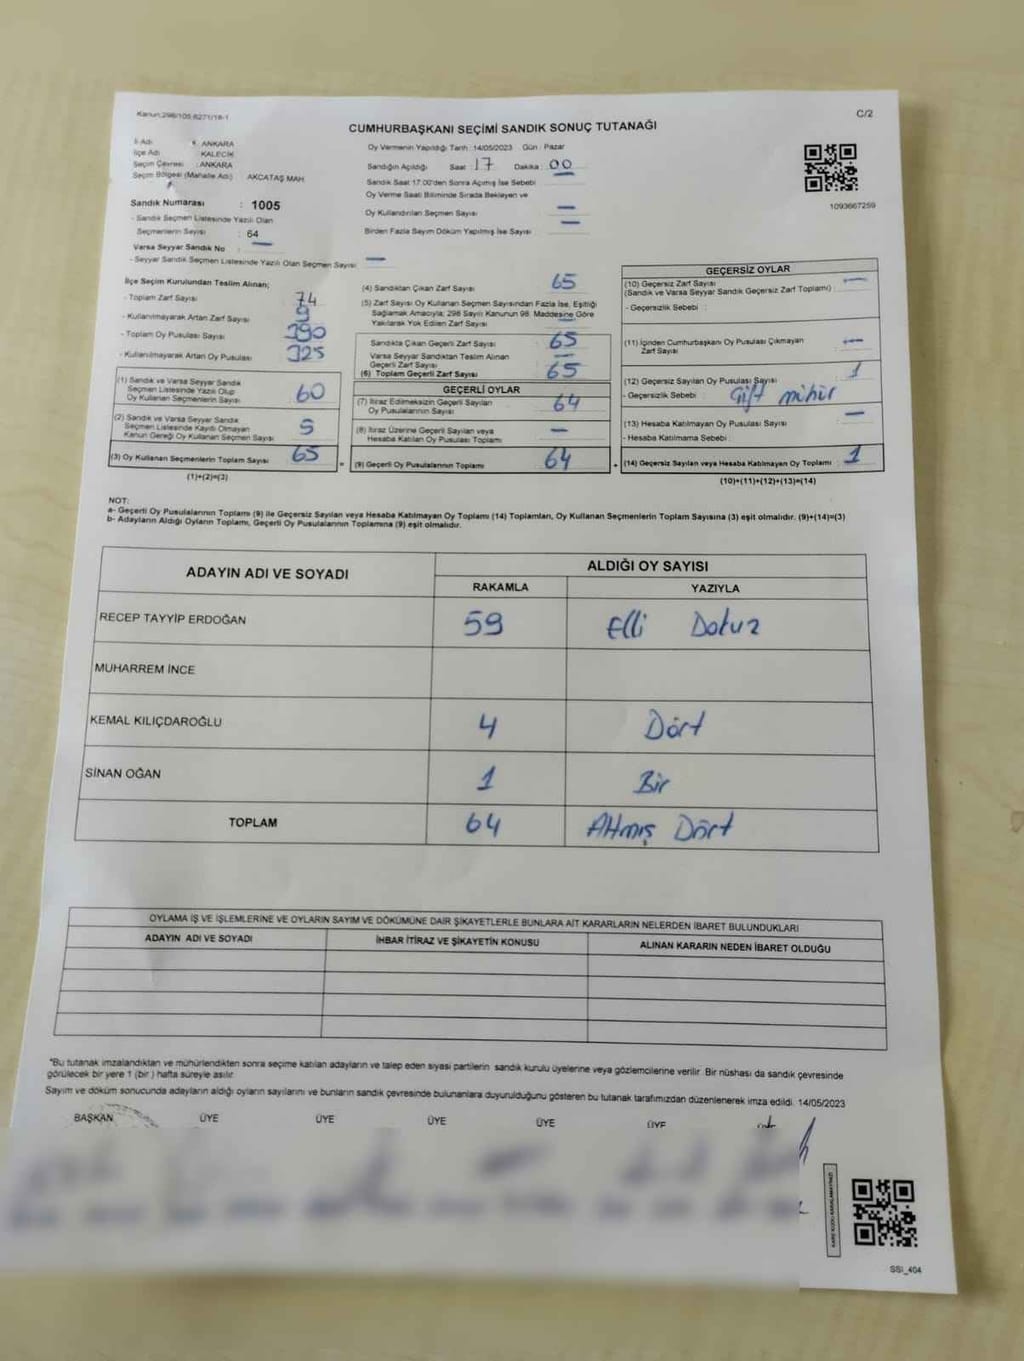 Kanun:298/105 6271/18-1
C/2
CUMHURBAŞKANI SEÇİMİ SANDIK SONUÇ TUTANAĞI
İl Adı : ANKARA
İlçe Adı : KALECİK
Seçim Çevresi : ANKARA
Seçim Bölgesi (Mahalle Adı) : AKCATAŞ MAH.
Sandık Numarası : 1005
- Sandık Seçmen Listesinde Yazılı Olan
Seçmenlerin Sayısı : 64
Varsa Seyyar Sandık No : —
- Seyyar Sandık Seçmen Listesinde Yazılı Olan Seçmen Sayısı : —
Oy Vermenin Yapıldığı Tarih :14/05/2023 Gün : Pazar
Sandığın Açıldığı Saat : 17 Dakika : 00
Sandık Saat 17.00'den Sonra Açımış İse Sebebi
Oy Verme Saati Bitiminde Sırada Bekleyen ve
Oy Kullandırılan Seçmen Sayısı —
Birden Fazla Sayım Döküm Yapılmış İse Sayısı —
1093667259
İlçe Seçim Kurulundan Teslim Alınan;
- Toplam Zarf Sayısı 74
- Kullanılmayarak Artan Zarf Sayısı 9
- Toplam Oy Pusulası Sayısı 390
- Kullanılmayarak Artan Oy Pusulası 325
(1) Sandık ve Varsa Seyyar Sandık
Seçmen Listesinde Yazılı Olup
Oy Kullanan Seçmenlerin Sayısı 60
(2) Sandık ve Varsa Seyyar Sandık
Seçmen Listesinde Kayıtlı Olmayan
Kanun Gereği Oy Kullanan Seçmen Sayısı 5
(3) Oy Kullanan Seçmenlerin Toplam Sayısı 65
(1)+(2)=(3)
(4) Sandıktan Çıkan Zarf Sayısı 65
(5) Zarf Sayısı Oy Kullanan Seçmen Sayısından Fazla İse, Eşitliği
Sağlamak Amacıyla; 298 Sayılı Kanunun 98. Maddesine Göre
Yakılarak Yok Edilen Zarf Sayısı —
Sandıkta Çıkan Geçerli Zarf Sayısı 65
Varsa Seyyar Sandıktan Teslim Alınan
Geçerli Zarf Sayısı —
(6) Toplam Geçerli Zarf Sayısı 65
GEÇERLİ OYLAR
(7) İtiraz Edilmeksizin Geçerli Sayılan
Oy Pusulalarının Sayısı 64
(8) İtiraz Üzerine Geçerli Sayılan veya
Hesaba Katılan Oy Pusulası Toplamı —
= (9) Geçerli Oy Pusulalarının Toplamı 64
GEÇERSİZ OYLAR
(10) Geçersiz Zarf Sayısı —
(Sandık ve Varsa Seyyar Sandık Geçersiz Zarf Toplamı) :
- Geçersizlik Sebebi :
(11) İçinden Cumhurbaşkanı Oy Pusulası Çıkmayan
Zarf Sayısı —
(12) Geçersiz Sayılan Oy Pusulası Sayısı 1
- Geçersizlik Sebebi : Çift mühür
(13) Hesaba Katılmayan Oy Pusulası Sayısı —
- Hesaba Katılmama Sebebi :
+ (14) Geçersiz Sayılan veya Hesaba Katılmayan Oy Toplamı : 1
(10)+(11)+(12)+(13)=(14)
NOT:
a- Geçerli Oy Pusulalarının Toplamı (9) ile Geçersiz Sayılan veya Hesaba Katılmayan Oy Toplamı (14) Toplamları, Oy Kullanan Seçmenlerin Toplam Sayısına (3) eşit olmalıdır. (9)+(14)=(3)
b- Adayların Aldığı Oyların Toplamı, Geçerli Oy Pusulalarının Toplamına (9) eşit olmalıdır.
ADAYIN ADI VE SOYADI
ALDIĞI OY SAYISI
RAKAMLA YAZIYLA
RECEP TAYYİP ERDOĞAN 59 Elli Dokuz
MUHARREM İNCE
KEMAL KILIÇDAROĞLU 4 Dört
SİNAN OĞAN 1 Bir
TOPLAM 64 Altmış Dört
OYLAMA İŞ VE İŞLEMLERİNE VE OYLARIN SAYIM VE DÖKÜMÜNE DAİR ŞİKAYETLERLE BUNLARA AİT KARARLARIN NELERDEN İBARET BULUNDUKLARI
ADAYIN ADI VE SOYADI İHBAR İTİRAZ VE ŞİKAYETİN KONUSU ALINAN KARARIN NEDEN İBARET OLDUĞU
*Bu tutanak imzalandıktan ve mühürlendikten sonra seçime katılan adayların ve talep eden siyasi partilerin sandık kurulu üyelerine veya gözlemcilerine verilir. Bir nüshası da sandık çevresinde
görülecek bir yere 1 (bir) hafta süreyle asılır.
Sayım ve döküm sonucunda adayların aldığı oyların sayılarını ve bunların sandık çevresinde bulunanlara duyurulduğunu gösteren bu tutanak tarafımızdan düzenlenerek imza edildi. 14/05/2023
BAŞKAN ÜYE ÜYE ÜYE ÜYE ÜYE
SSI_404